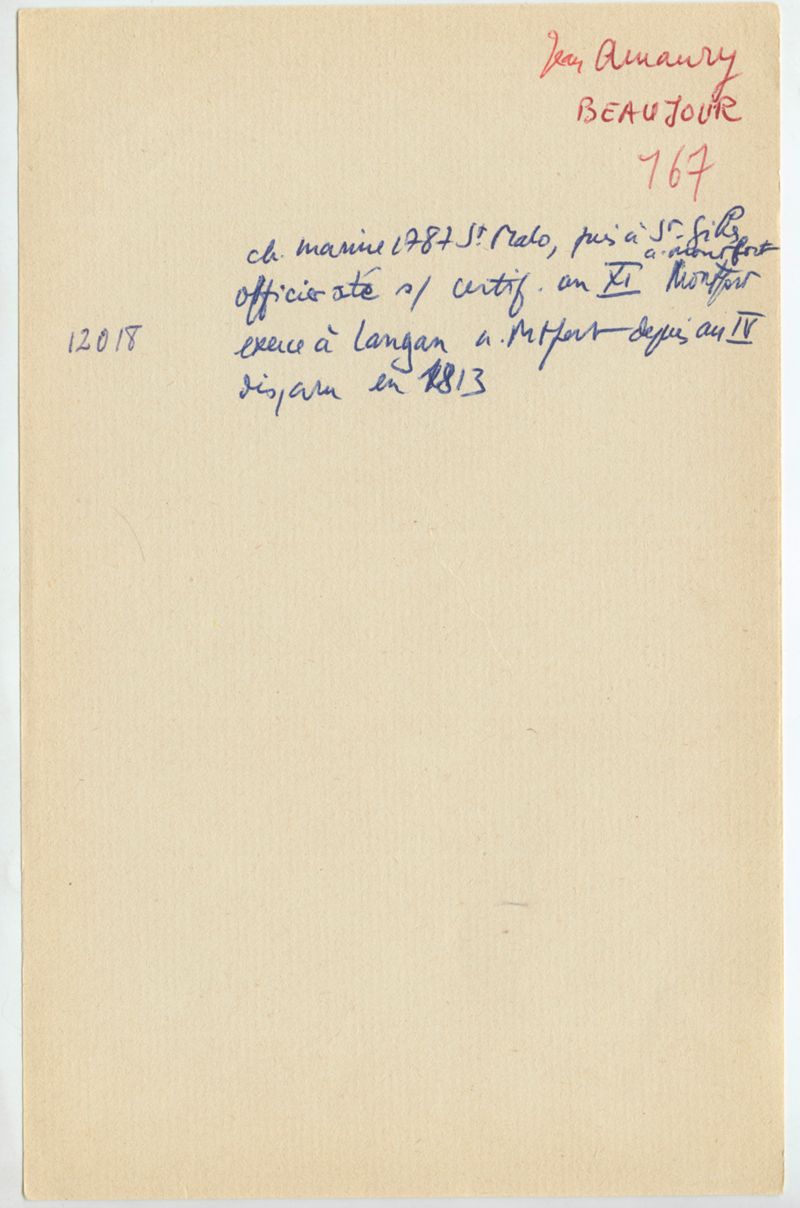 Jean Amaury
BEAUJOUR
167
ch. marine 1787 St Malo, puis à St-Gilles
a. montfort
officier sté s/ certif. an XI Montfort
12018
exerce à Langan a. Mtfort depuis an IV
disparu en 1813